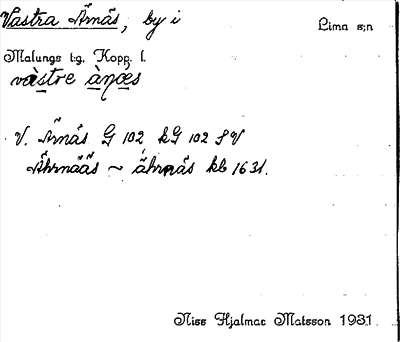 Västra Årnäs, by i Lima s:n
Malungs t:g, Kopp. l.
västre àŋǽs
V. Årnäs G 102 kG 102 SV
Åhrnääs ~ åhrnäs kb 1631.
Nils Hjalmar Matsson 1931